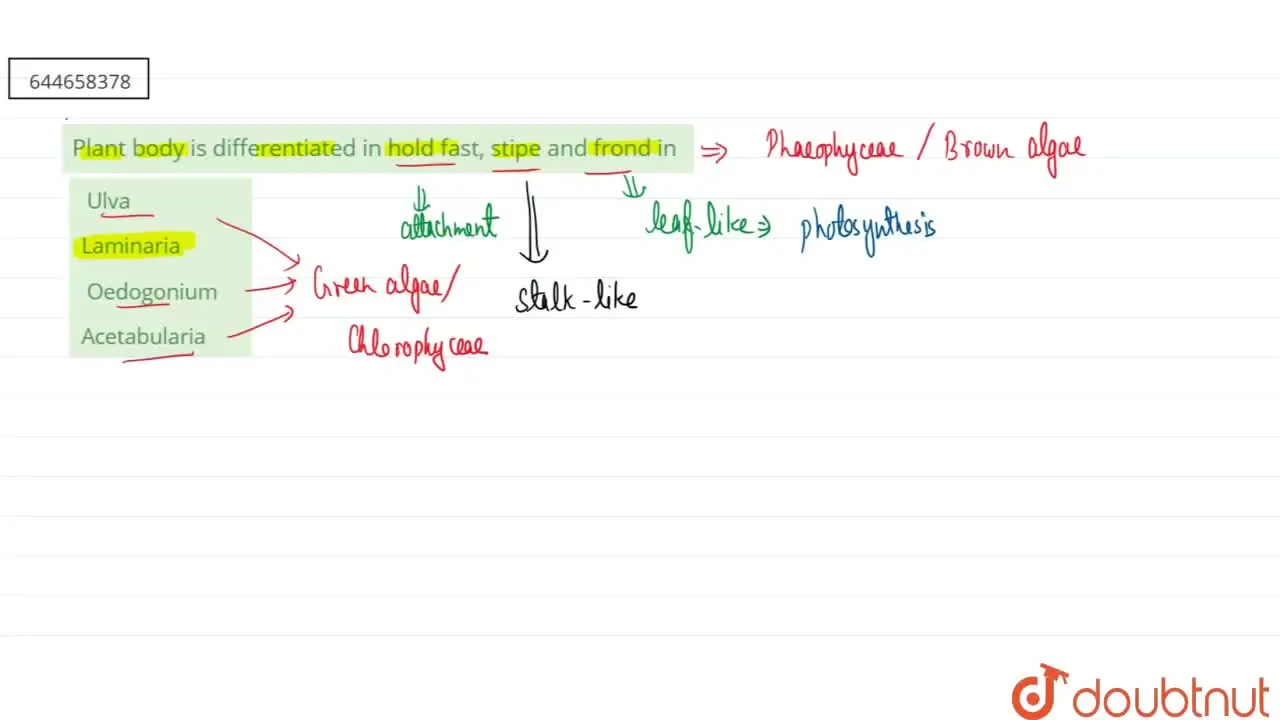 644658378
Plant body is differentiated in hold fast, stipe and frond in ⇒ Phaeophyceae / Brown algae
Ulva
attachment
leaf-like ⇒ photosynthesis
Laminaria
Oedogonium
Green algae/
stalk-like
Acetabularia
Chlorophyceae
doubtnut